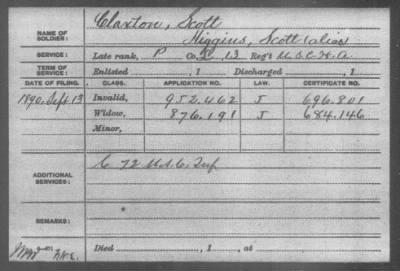 Claxton, Scott
NAME OF SOLDIER:
Higgins, Scott (alias
SERVICE:
Late rank, P Co. 13 Reg't U.S.C.H.A.
TERM OF SERVICE:
Enlisted , 1 Discharged , 1
DATE OF FILING. CLASS. APPLICATION NO. LAW. CERTIFICATE NO.
1890, Sept 13 Invalid, 952.462 J 696.801
Widow, 876.191 J 684.146
Minor,
C 72 U.S.C. Inf
ADDITIONAL SERVICES:
REMARKS:
Died , 1 , at